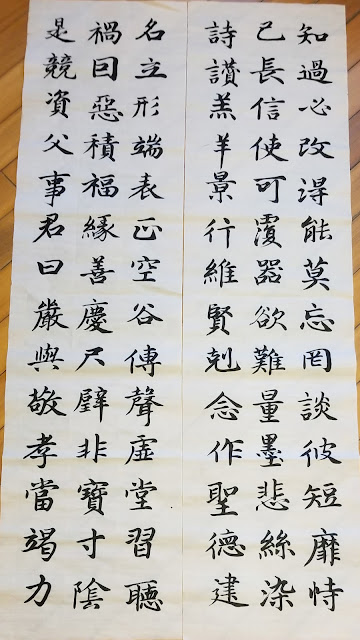 知過必改得能莫忘罔談彼短靡恃
己長信使可覆器欲難量墨悲絲染
詩讃羔羊景行維賢剋念作聖德建
名立形端表正空谷傳聲虛堂習聽
禍囙惡積福緣善慶尺璧非寶寸陰
是競資父事君曰嚴與敬孝當竭力